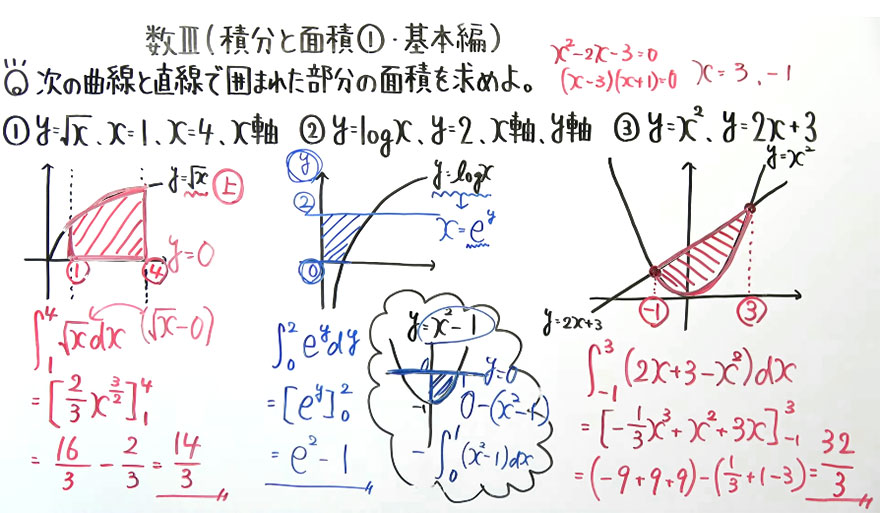 数Ⅲ(積分と面積①・基本編)
次の曲線と直線で囲まれた部分の面積を求めよ。
x²-2x-3=0
(x-3)(x+1)=0 x=3、-1
① y=√x、x=1、x=4、x軸
② y=logx、y=2、x軸、y軸
③ y=x²、y=2x+3
y=√x 上
y=0
① ④
∫₁⁴ √x dx (√x-0)
= [2/3 x^(3/2)]₁⁴
= 16/3 - 2/3 = 14/3
y
2
0
y=logx
x=e^y
∫₀² e^y dy
= [e^y]₀²
= e²-1
y=x²-1
y=0
-1
1
0-(x²-1)
-∫₀¹ (x²-1)dx
y=x²
y=2x+3
-1 3
∫₋₁³ (2x+3-x²)dx
= [-1/3 x³+x²+3x]₋₁³
= (-9+9+9)-(1/3+1-3)= 32/3